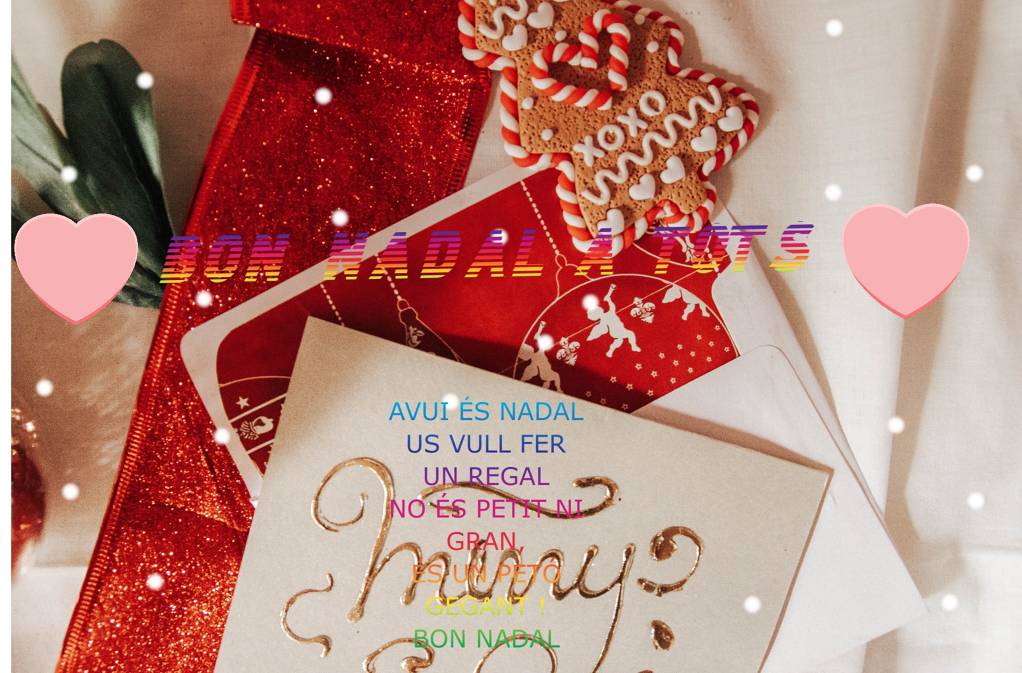 XOXO
BON NADAL A TOTS
AVUI ÉS NADAL
US VULL FER
UN REGAL
NO ÉS PETIT NI
GRAN,
ÉS UN PETÓ
GEGANT !
BON NADAL